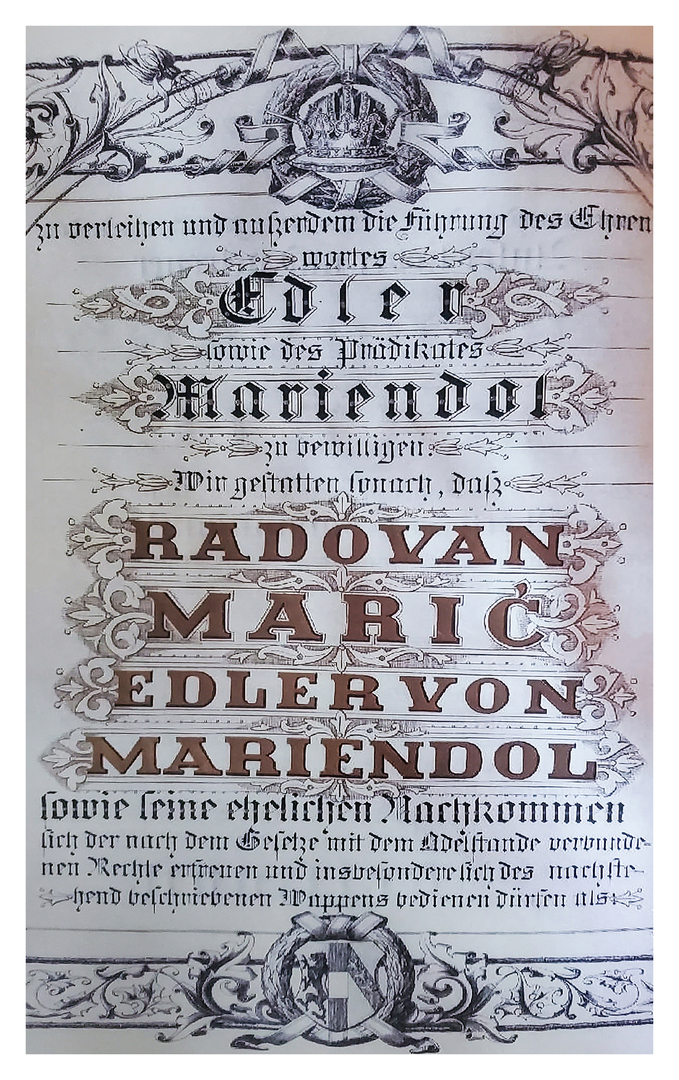 zu verleihen und außerdem die Führung des Ehren
wortes
Edler
sowie des Prädikates
Mariendol
zu bewilligen.
Wir gestatten sonach, daß
RADOVAN
MARIĆ
EDLER VON
MARIENDOL
sowie seine ehelichen Nachkommen
sich der nach dem Gesetze mit dem Adelstande verbunde-
nen Rechte erfreuen und insbesondere sich des nachste-
hend beschriebenen Wappens bedienen dürfen als: